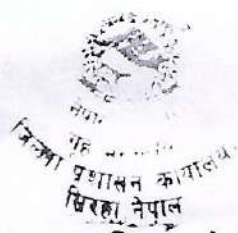 नेपा
गृह
जिल्ला प्रशासन कार्यालय
सिरहा, नेपाल